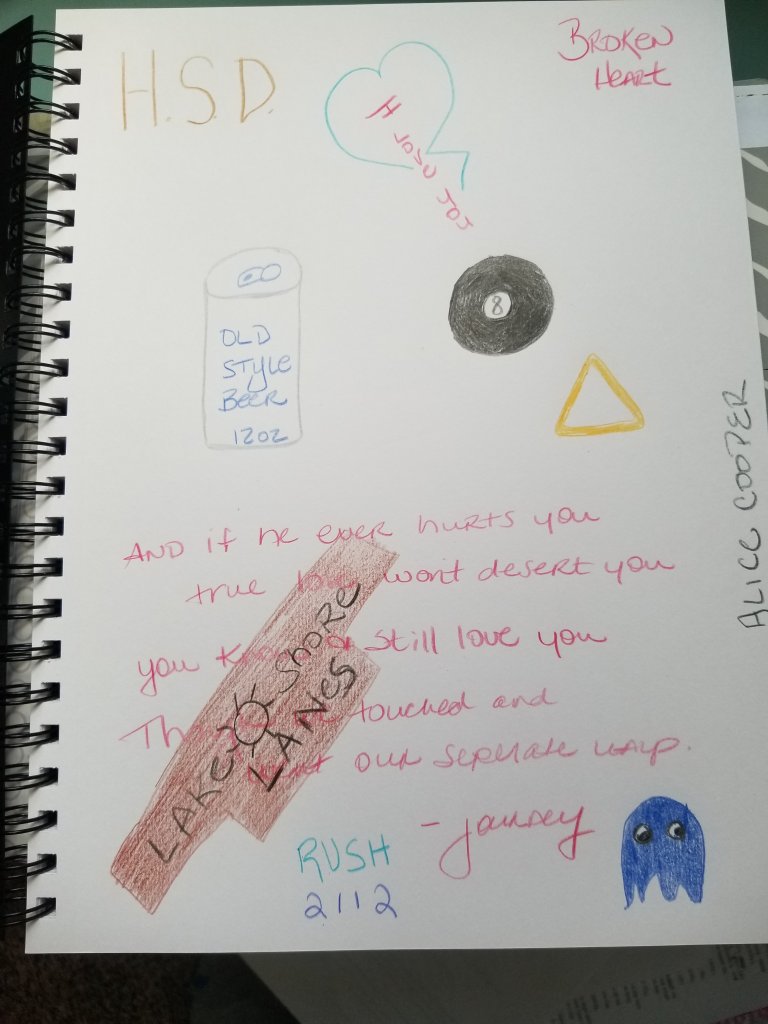 H.S.D.
BROKEN
HEART
H
JOSU
JOJ
8
OLD
STYLE
BEER
12OZ
ALICE COOPER
AND if he ever hurts you
true love wont desert you
you know I still love you
Though we touched and
went our seperate ways.
- Journey
LAKE SHORE
LANES
RUSH
2112